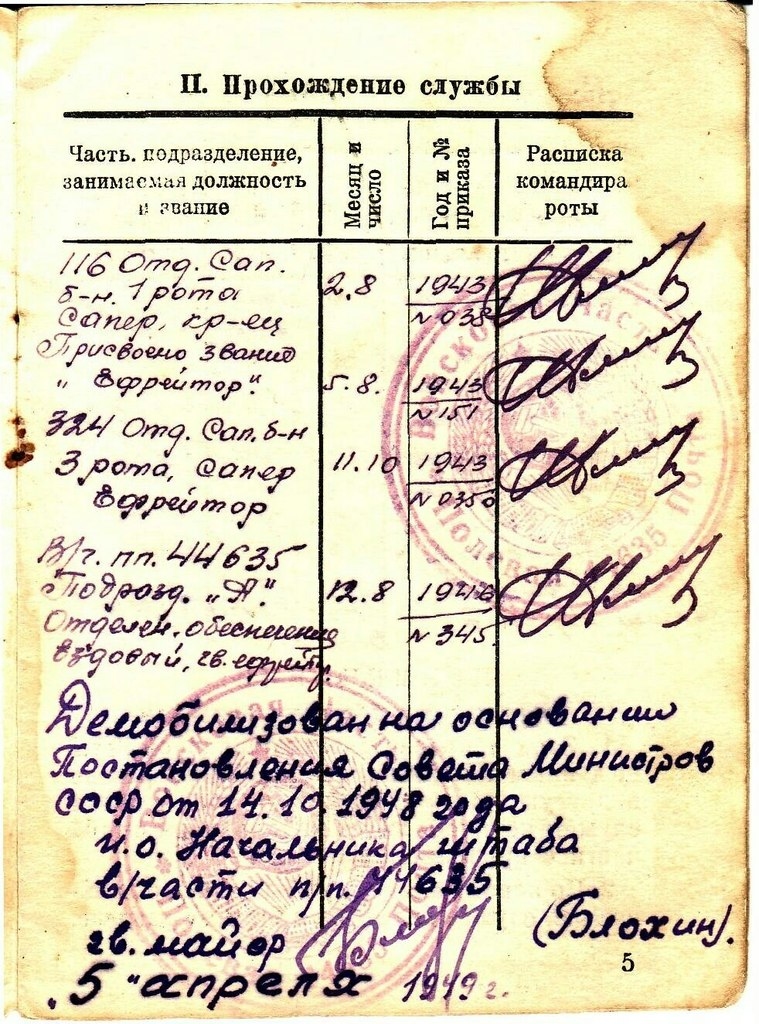 II. Прохождение службы
Часть, подразделение,
занимаемая должность
и звание
Месяц и
число
Год и №
приказа
Расписка
командира
роты
116 Отд. Сап.
б-н. 1 рота
Сапер, кр-ец
2.8
1943
N 038
Присвоено звание
"Ефрейтор".
5.8.
1943
N 151
324 Отд. Сап. б-н
3 рота, Сапер
Ефрейтор
11.10
1943
N 0350
В/ч. пп. 44635
Подразд. "А".
Отделен. обеспечения
Ездовый, гв. ефрейтр.
12.8
1946
N 345.
Демобилизован на основании
Постановления Совета Министров
СССР от 14.10.1948 года
и.о. Начальника штаба
в/части п/п. 44635
гв. майор
(Блохин).
"5" апреля 1949 г.
5